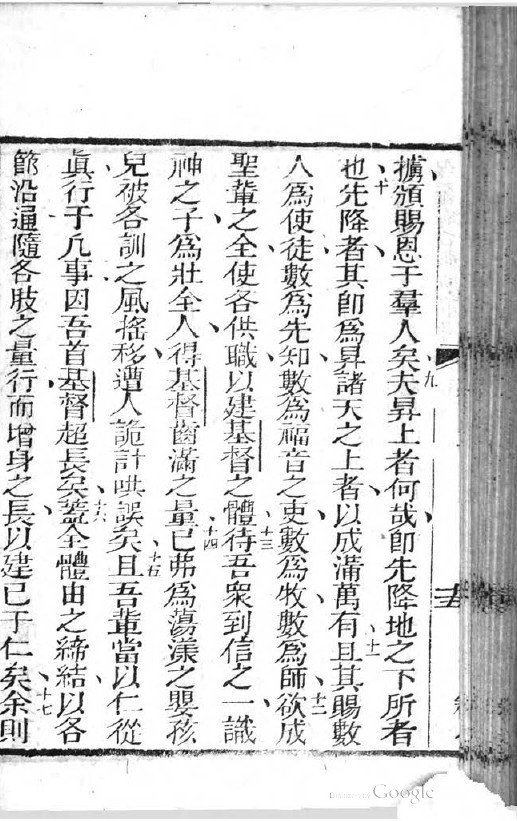 擄頒賜恩于羣人矣九夫昇上者何哉即先降地之下所者
十也先降者其即爲昇諸天之上者以成滿萬有十一且其賜數
人爲使徒數爲先知數爲福音之吏數爲牧數爲師十二欲成
聖輩之全使各供職以建基督之體十三待吾衆到信之一識
神之子爲壯全人得基督齒滿之量已十四弗爲蕩漾之嬰孩
兒被各訓之風搖移遭人詭計哄誤矣十五且吾輩當以仁從
眞行于凡事因吾首基督超長矣十六蓋全體由之締結以各
節沿通隨各肢之量行而增身之長以建已于仁矣十七余則
Google